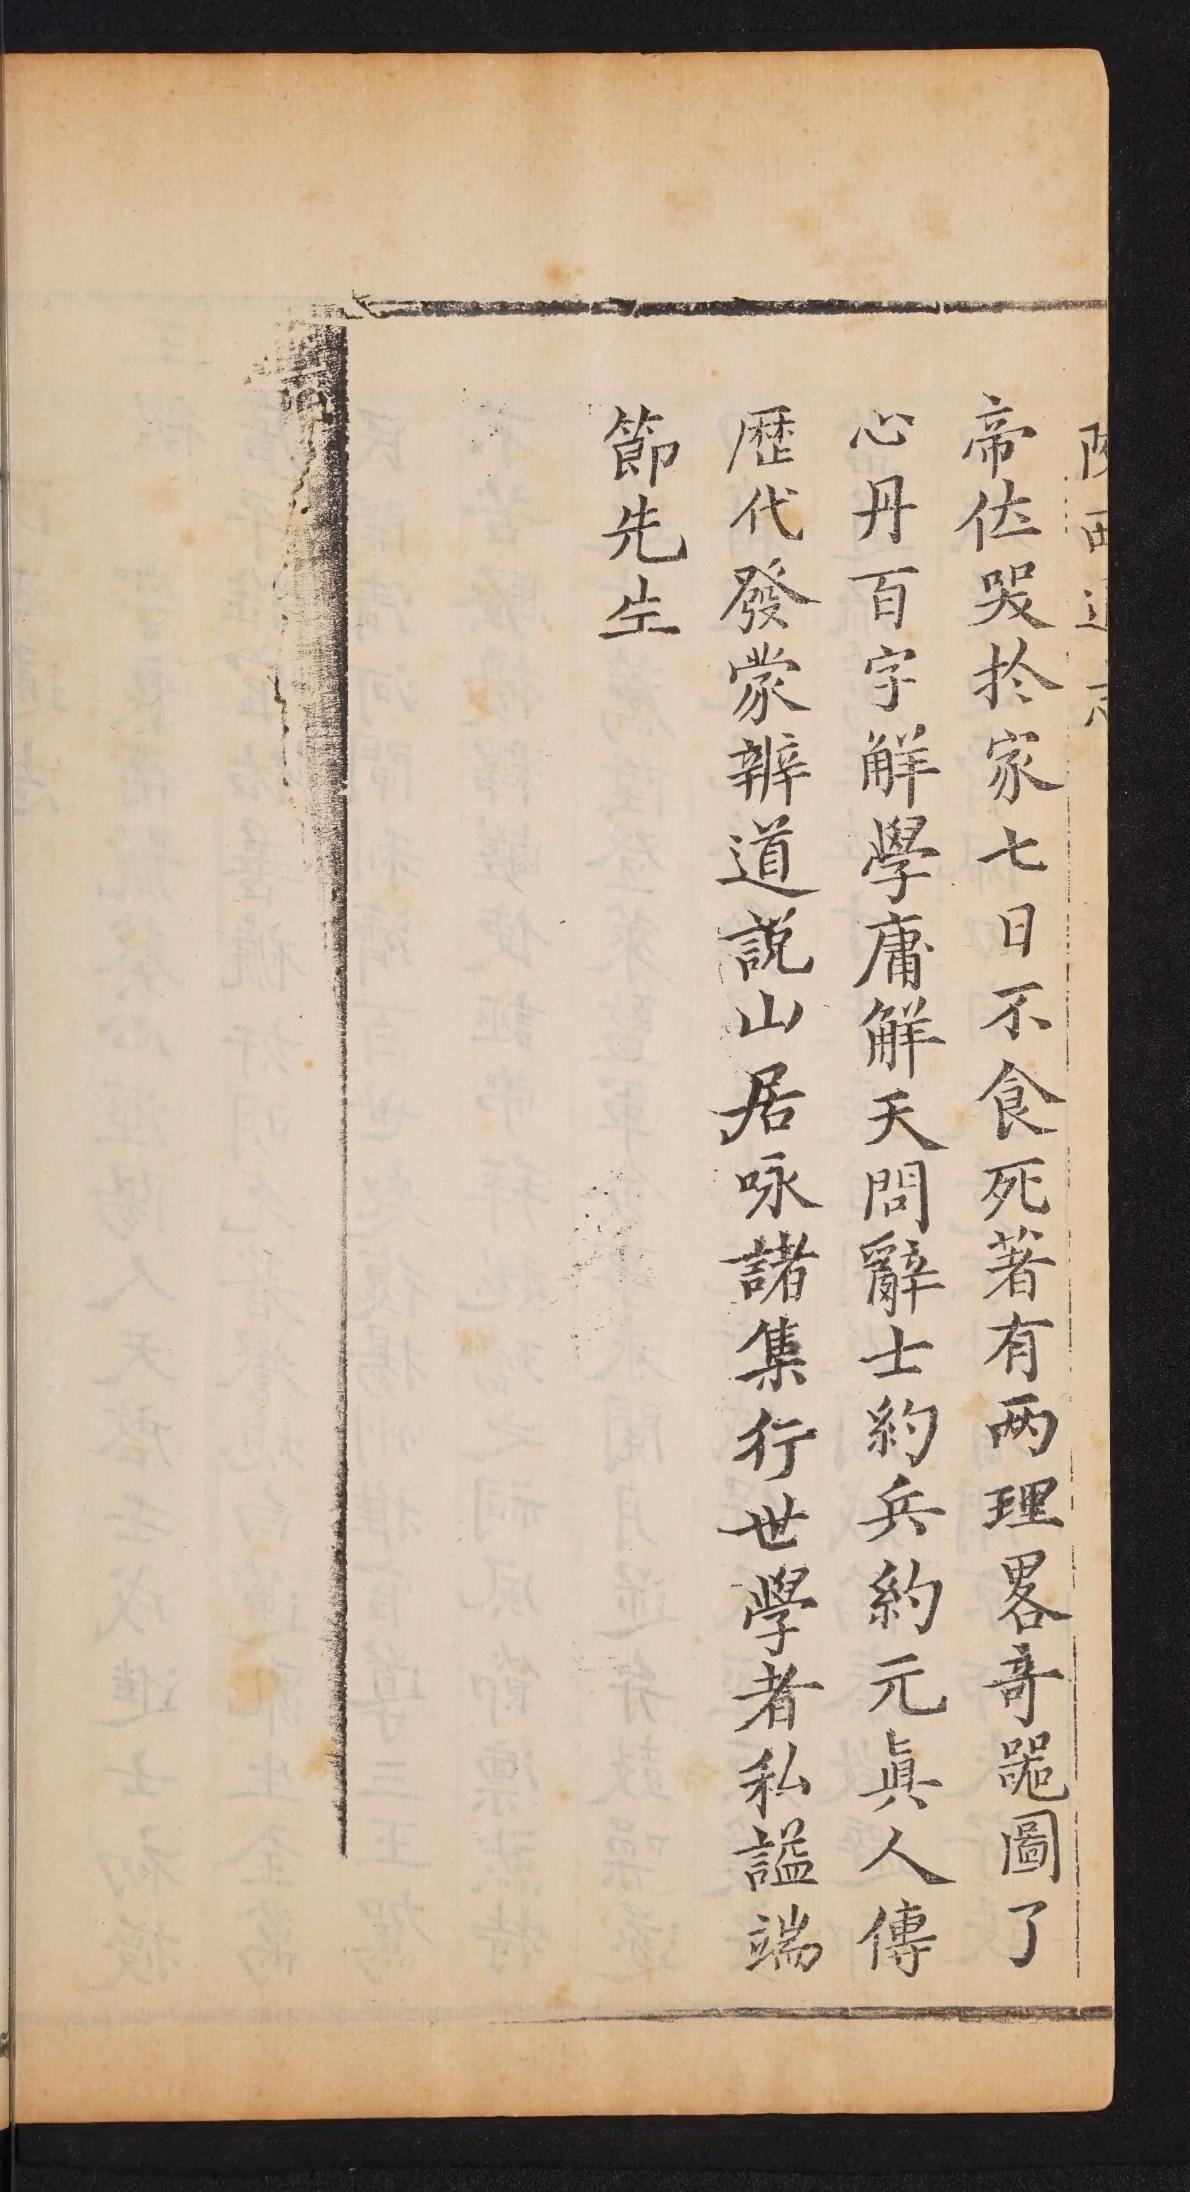 陝西通志
帝位哭於家七日不食死著有两理畧奇噐圖了
心丹百字觧學庸觧天問辭士約兵約元眞人傳
歴代發蒙辨道説山居咏諸集行世學者私謚端
節先生